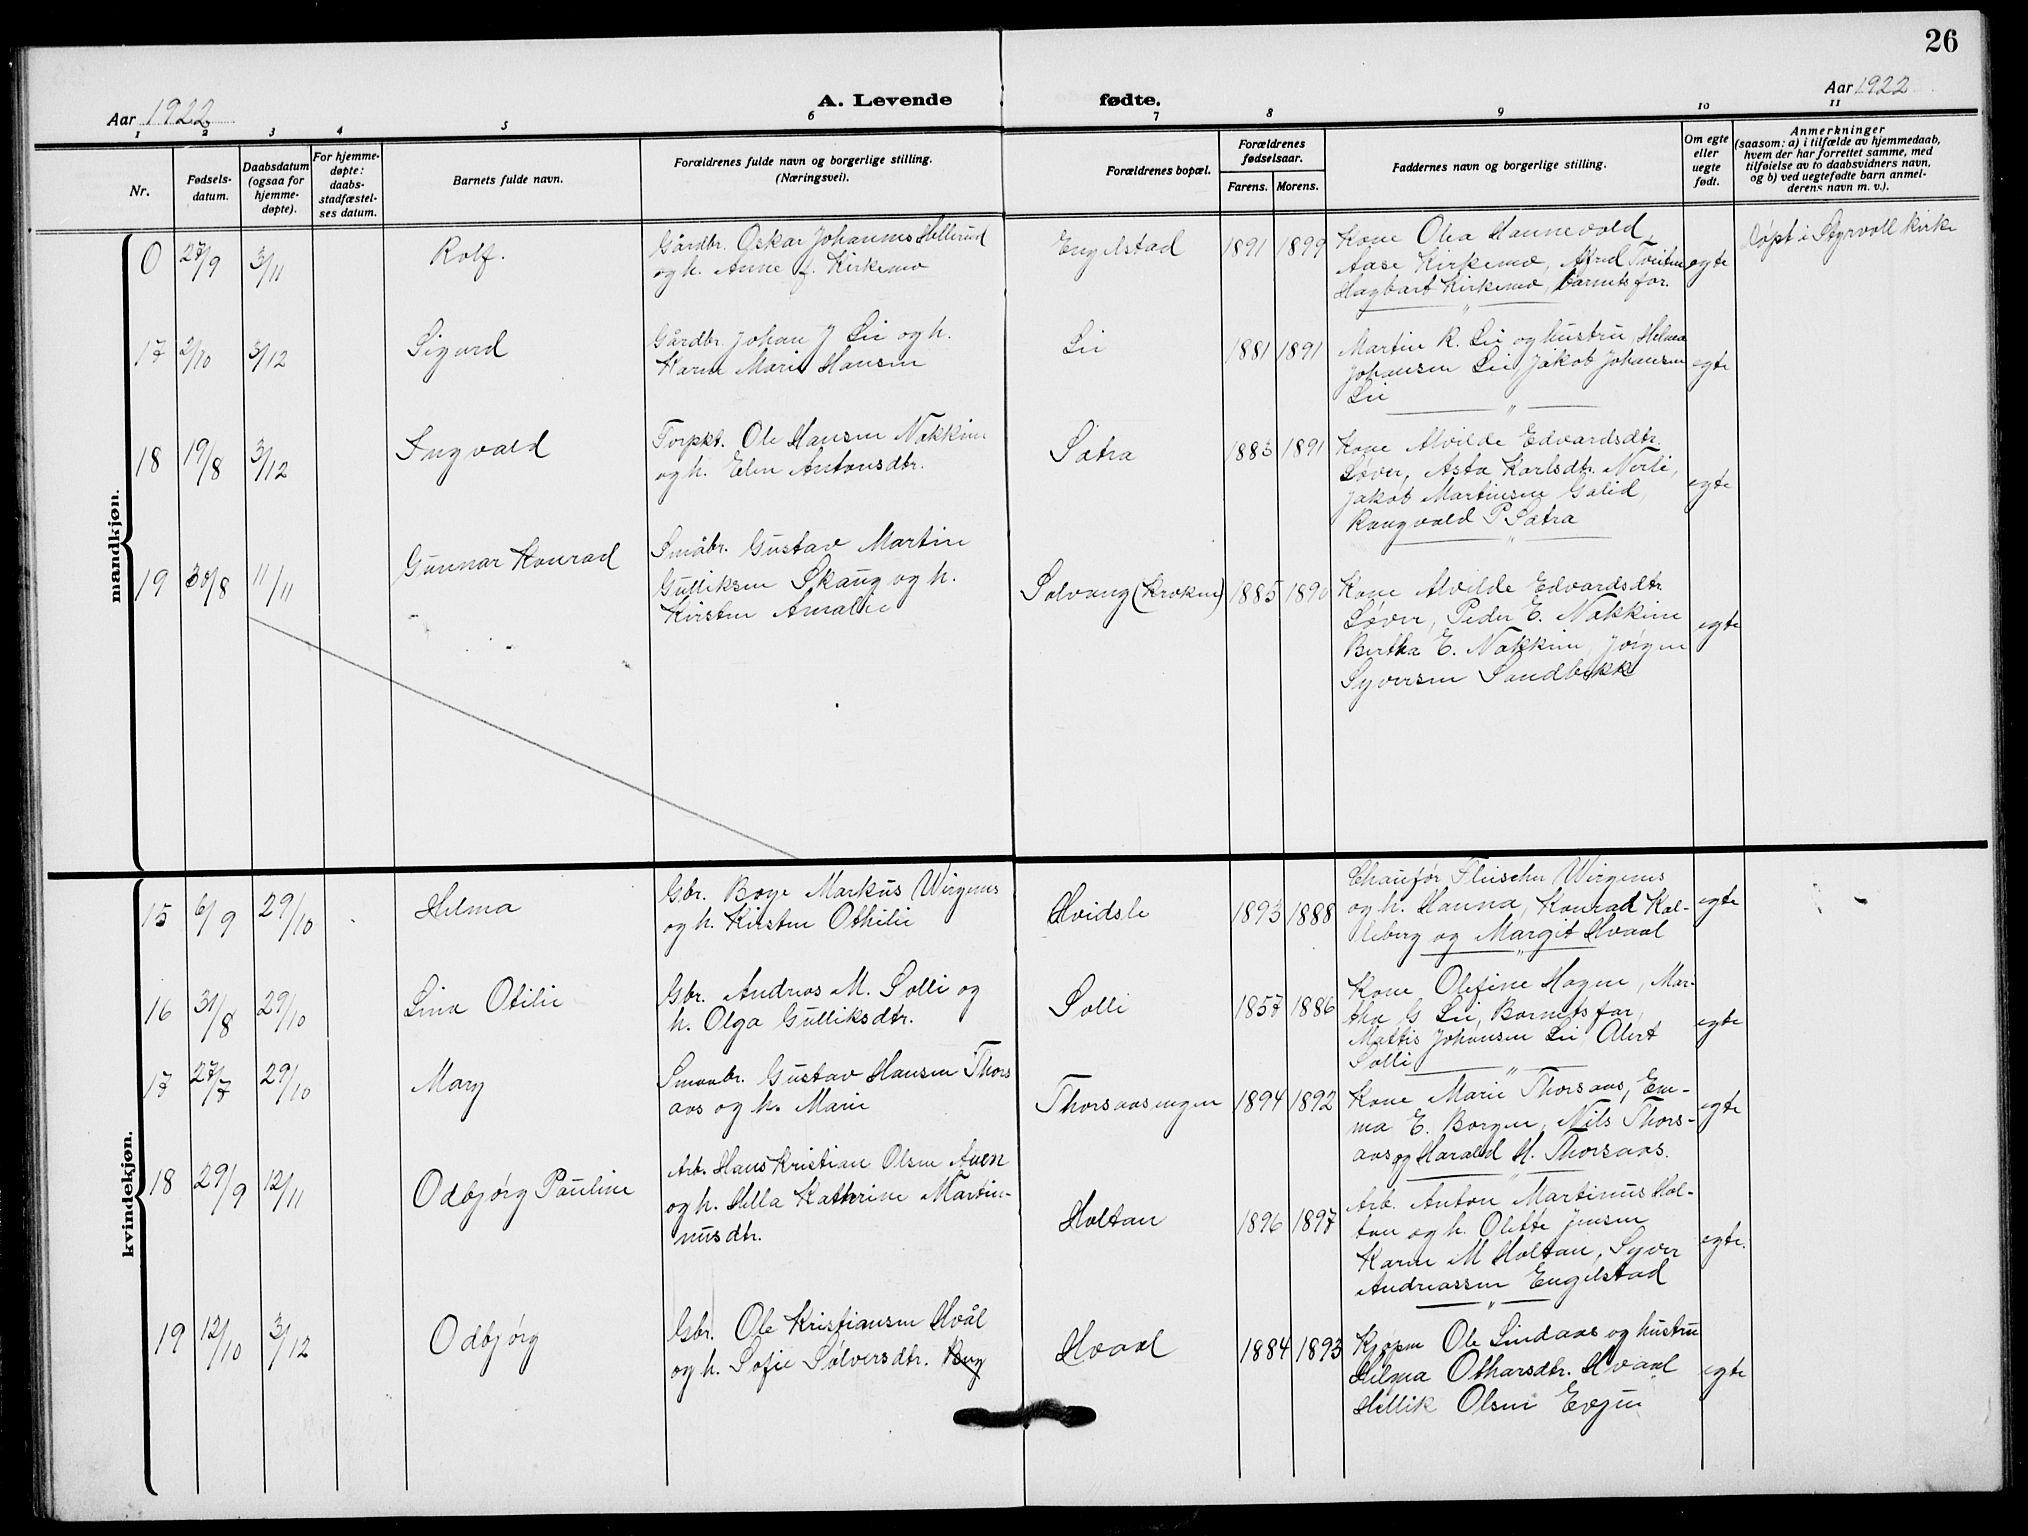 26
Aar 1922
A. Levende fødte.
Aar 1922
1 2 3 4 5 6 7 8 9 10 11
Nr.
Fødsels-
datum.
Daabsdatum
(ogsaa for
hjemme-
døpte).
For hjemme-
døpte:
daabs-
stadfæstel-
ses datum.
Barnets fulde navn.
Forældrenes fulde navn og borgerlige stilling.
(Næringsvei).
Forældrenes bopæl.
Forældrenes
fødselsaar.
Farens. Morens.
Faddernes navn og borgerlige stilling.
Om egte
eller
uegte
født.
Anmerkninger
(saasom: a) i tilfælde av hjemmedaab,
hvem der har forrettet samme, med
tilføielse av to daabsvidners navn,
og b) ved uegtefødte barn anmel-
derens navn m. v.).
mandkjøn.
0 27/9 3/11 Rolf.
Gårdbr. Oskar Johannes Hellerud
og h. Anne f. Kirkemo
Engelstad 1891 1899
Kone Olea Hannevold,
Aase Kirkemo, Tveiten
Hagbart Kirkemo, barnets far.
egte
Døpt i Styrvoll kirke
17 2/10 3/12 Sigurd
Gårdbr. Johan J Lie og h.
Karen Marie Hansen
Lie 1881 1891
Martin R. Lie og hustru, Helma
Johansen Lie Jakob Johansen
Lie
egte
18 19/8 3/12 Ingvald
Torpkt. Ole Hansen Nakkim
og h. Elen Antonsdtr.
Sætra 1883 1891
Kone Alvilde Edvardsdtr.
Løver, Asta Karlsdtr. Nerli,
Jakob Martinsen Galid,
Rangvald P Sætra
egte
19 30/8 11/11 Gunnar Konrad
Småbr. Gustav Martin
Gulliksen Skaug og h.
Kirsten Amalie
Solvang (Kroken) 1885 1890
Kone Alvilde Edvardsdtr.
Løver, Peder E. Nakkim
Bertha E. Nakkim, Jørgen
Syversen Sandbekk
egte
kvindekjøn.
15 6/9 29/10 Helma
Gbr. Boye Markus Wirgenes
og h. Kirsten Othilie
Hvidsle 1893 1888
Chaufør Fleischer Wirgenes
og h. Hanna, Konrad Kal-
leberg og Margit Hvaal
egte
16 31/8 29/10 Lina Otilie
Gbr. Andreas M. Solli og
h. Olga Gulliksdtr.
Solli 1857 1886
Kone Olefine Hagen, Mar-
tha G Lie, Barnets far,
Mattis Johansen Lie Alert
Solli
egte
17 27/7 29/10 Mary
Smaabr. Gustav Hansen Thors
aas og h. Marie
Thorsaasengen 1894 1892
Kone Marie Thorsaas, Em-
ma E. Borgen, Nils Thors-
aas og Harald H. Thorsaas.
egte
18 29/9 12/11 Odbjørg Pauline
Arb. Hans Kristian Olsen Auen
og h. Hella Kathrine Martin-
nusdtr.
Holtan 1896 1897
Arb. Anton Martinus Hol-
tan og h. Olette Jensen
Karen M Holtan, Syver
Andreassen Engelstad
egte.
19 12/10 3/12 Odbjørg
Gbr. Ole Kristiansen Hvål
og h. Sofie Sølversdtr. Berg
Hvaal 1884 1893
Kjøpm Ole Lindaas og hustru
Helma Otharsdtr. Hvaal
Hellik Olsen Evjen
egte